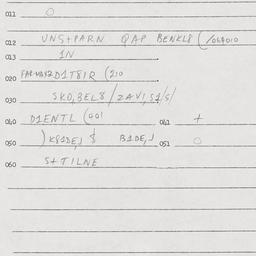 011 O
012 UNS+PARN QAP BENKL8 (/064010
013 IN
020 D1T81R (210
030 SKO,BEL8/ZAVI,S1/S/
040 D1ENTL (001 041 +
050 )K81DEJ $ B1DE,J 051 O
060 S+TILNE